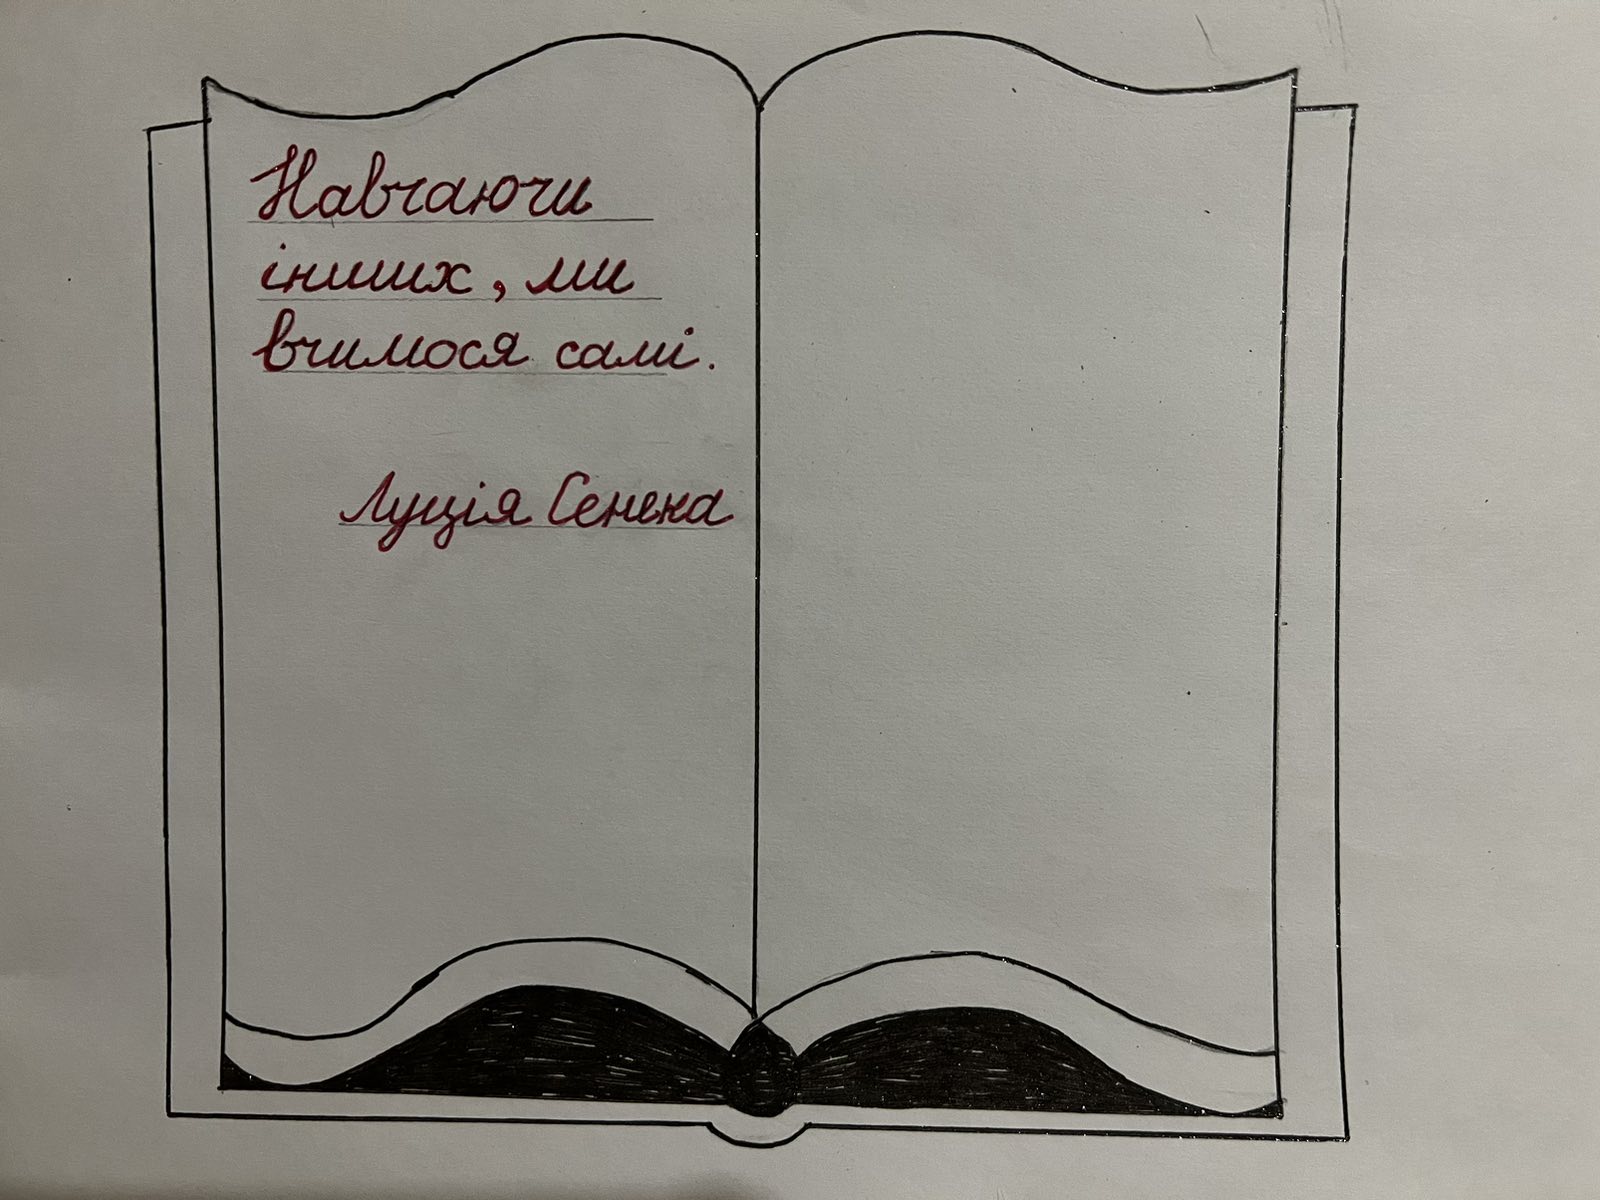 Навчаючи
інших, ми
вчимося самі.
Луція Сенека